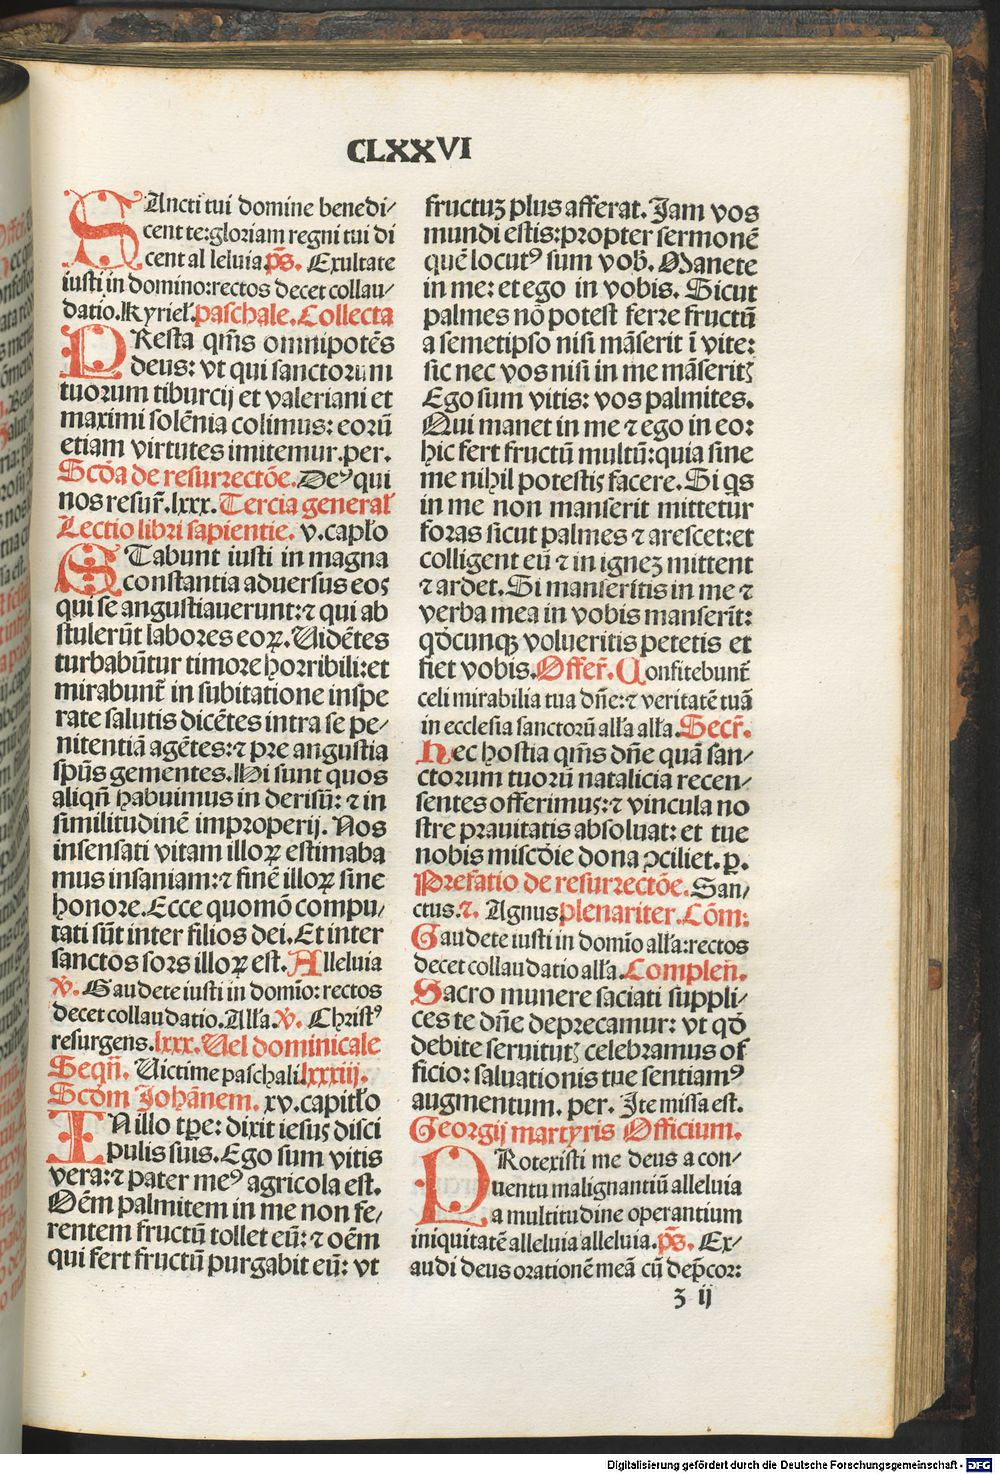 CLXXVI
SAncti tui domine benedi/
cent te:gloriam regni tui di
cent al leluia.p̃s. Exultate
iusti in domino:rectos decet collau/
datio.Kyriel̃.paschale.Collecta
PResta qm̃s omnipotẽs
deus: vt qui sanctorum
tuorum tiburcij et valeriani et
maximi solẽnia colimus: eorũ
etiam virtutes imitemur.per.
Scd̃a de resurrectõe.Deꝰ qui
nos resur̃.lxxx.Tercia general̃
Lectio libri sapientie. v.capl̃o
STabunt iusti in magna
constantia aduersus eos
qui se angustiauerunt:⁊ qui ab
stulerũt labores eoꝝ.Uidẽtes
turbabũtur timore horribili:et
mirabunt̃ in subitatione inspe
rate salutis dicẽtes intra se pe/
nitentiã agẽtes:⁊ pre angustia
sp̃us gementes.Hi sunt quos
aliqñ habuimus in derisũ: ⁊ in
similitudinẽ improperij. Nos
insensati vitam illoꝝ estimaba
mus insaniam:⁊ finẽ illoꝝ sine
honore.Ecce quomõ compu/
tati sũt inter filios dei.Et inter
sanctos sors illoꝝ est.Alleluia
ṽ. Gaudete iusti in domĩo: rectos
decet collaudatio.All'a.ṽ. Christꝰ
resurgens.lxxx.Uel dominicale
Seqñ. Uictime paschali.lxxxiij.
Scd̃m Johãnem. xv.capitl̃o
IN illo tp̃e: dixit iesus disci
pulis suis.Ego sum vitis
vera:⁊ pater meꝰ agricola est.
Oẽm palmitem in me non fe/
rentem fructũ tollet eũ: ⁊ oẽm
qui fert fructũ purgabit eũ: vt
fructuȝ plus afferat. Jam vos
mundi estis:propter sermonẽ
quẽ locutꝰ sum vob̃. Manete
in me: et ego in vobis. Sicut
palmes nõ potest ferre fructũ
a semetipso nisi mãserit ĩ vite:
sic nec vos nisi in me mãseritꝭ
Ego sum vitis: vos palmites.
Qui manet in me ⁊ ego in eo:
hic fert fructũ multũ:quia sine
me nihil potestis facere.Si q̃s
in me non manserit mittetur
foras sicut palmes ⁊ arescet:et
colligent eũ ⁊ in ignez mittent
⁊ ardet.Si manseritis in me ⁊
verba mea in vobis manserĩt:
qõcunqꝫ volueritis petetis et
fiet vobis.Offer̃. Confitebunt̃
celi mirabilia tua dñe:⁊ veritatẽ tuã
in ecclesia sanctorũ all'a all'a.Secr̃.
Hec hostia qm̃s dñe quã san/
ctorum tuorũ natalicia recen/
sentes offerimus:⁊ vincula no
stre prauitatis absoluat: et tue
nobis miscd̃ie dona ꝯciliet. ꝑ.
Prefatio de resurrectõe. San/
ctus.⁊. Agnus.plenariter.Cõm:
Gaudete iusti in domĩo all'a:rectos
decet collaudatio all'a.Compleñ.
Sacro munere saciati suppli/
ces te dñe deprecamur: vt qd̃
debite seruitutꝭ celebramus of
ficio: saluationis tue sentiamꝰ
augmentum. per. Jte missa est.
Georgij martyris Officium.
PRotexisti me deus a con/
uentu malignantiũ alleluia
a multitudine operantium
iniquitatẽ alleluia alleluia.p̃s. Ex/
audi deus orationẽ meã cũ dep̃cor:
ȝ ij
Digitalisierung gefördert durch die Deutsche Forschungsgemeinschaft - DFG